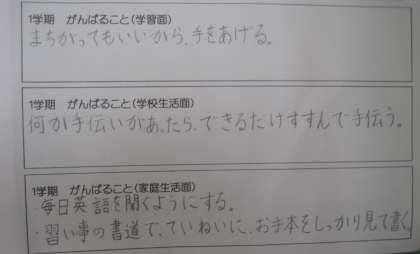 1学期 がんばること(学習面)
まちがってもいいから、手をあげる。
1学期 がんばること(学校生活面)
何か手伝いがあったら、できるだけすすんで手伝う。
1学期 がんばること(家庭生活面)
・毎日英語を聞くようにする。
・習い事の書道で、ていねいに、お手本をしっかり見て書く。